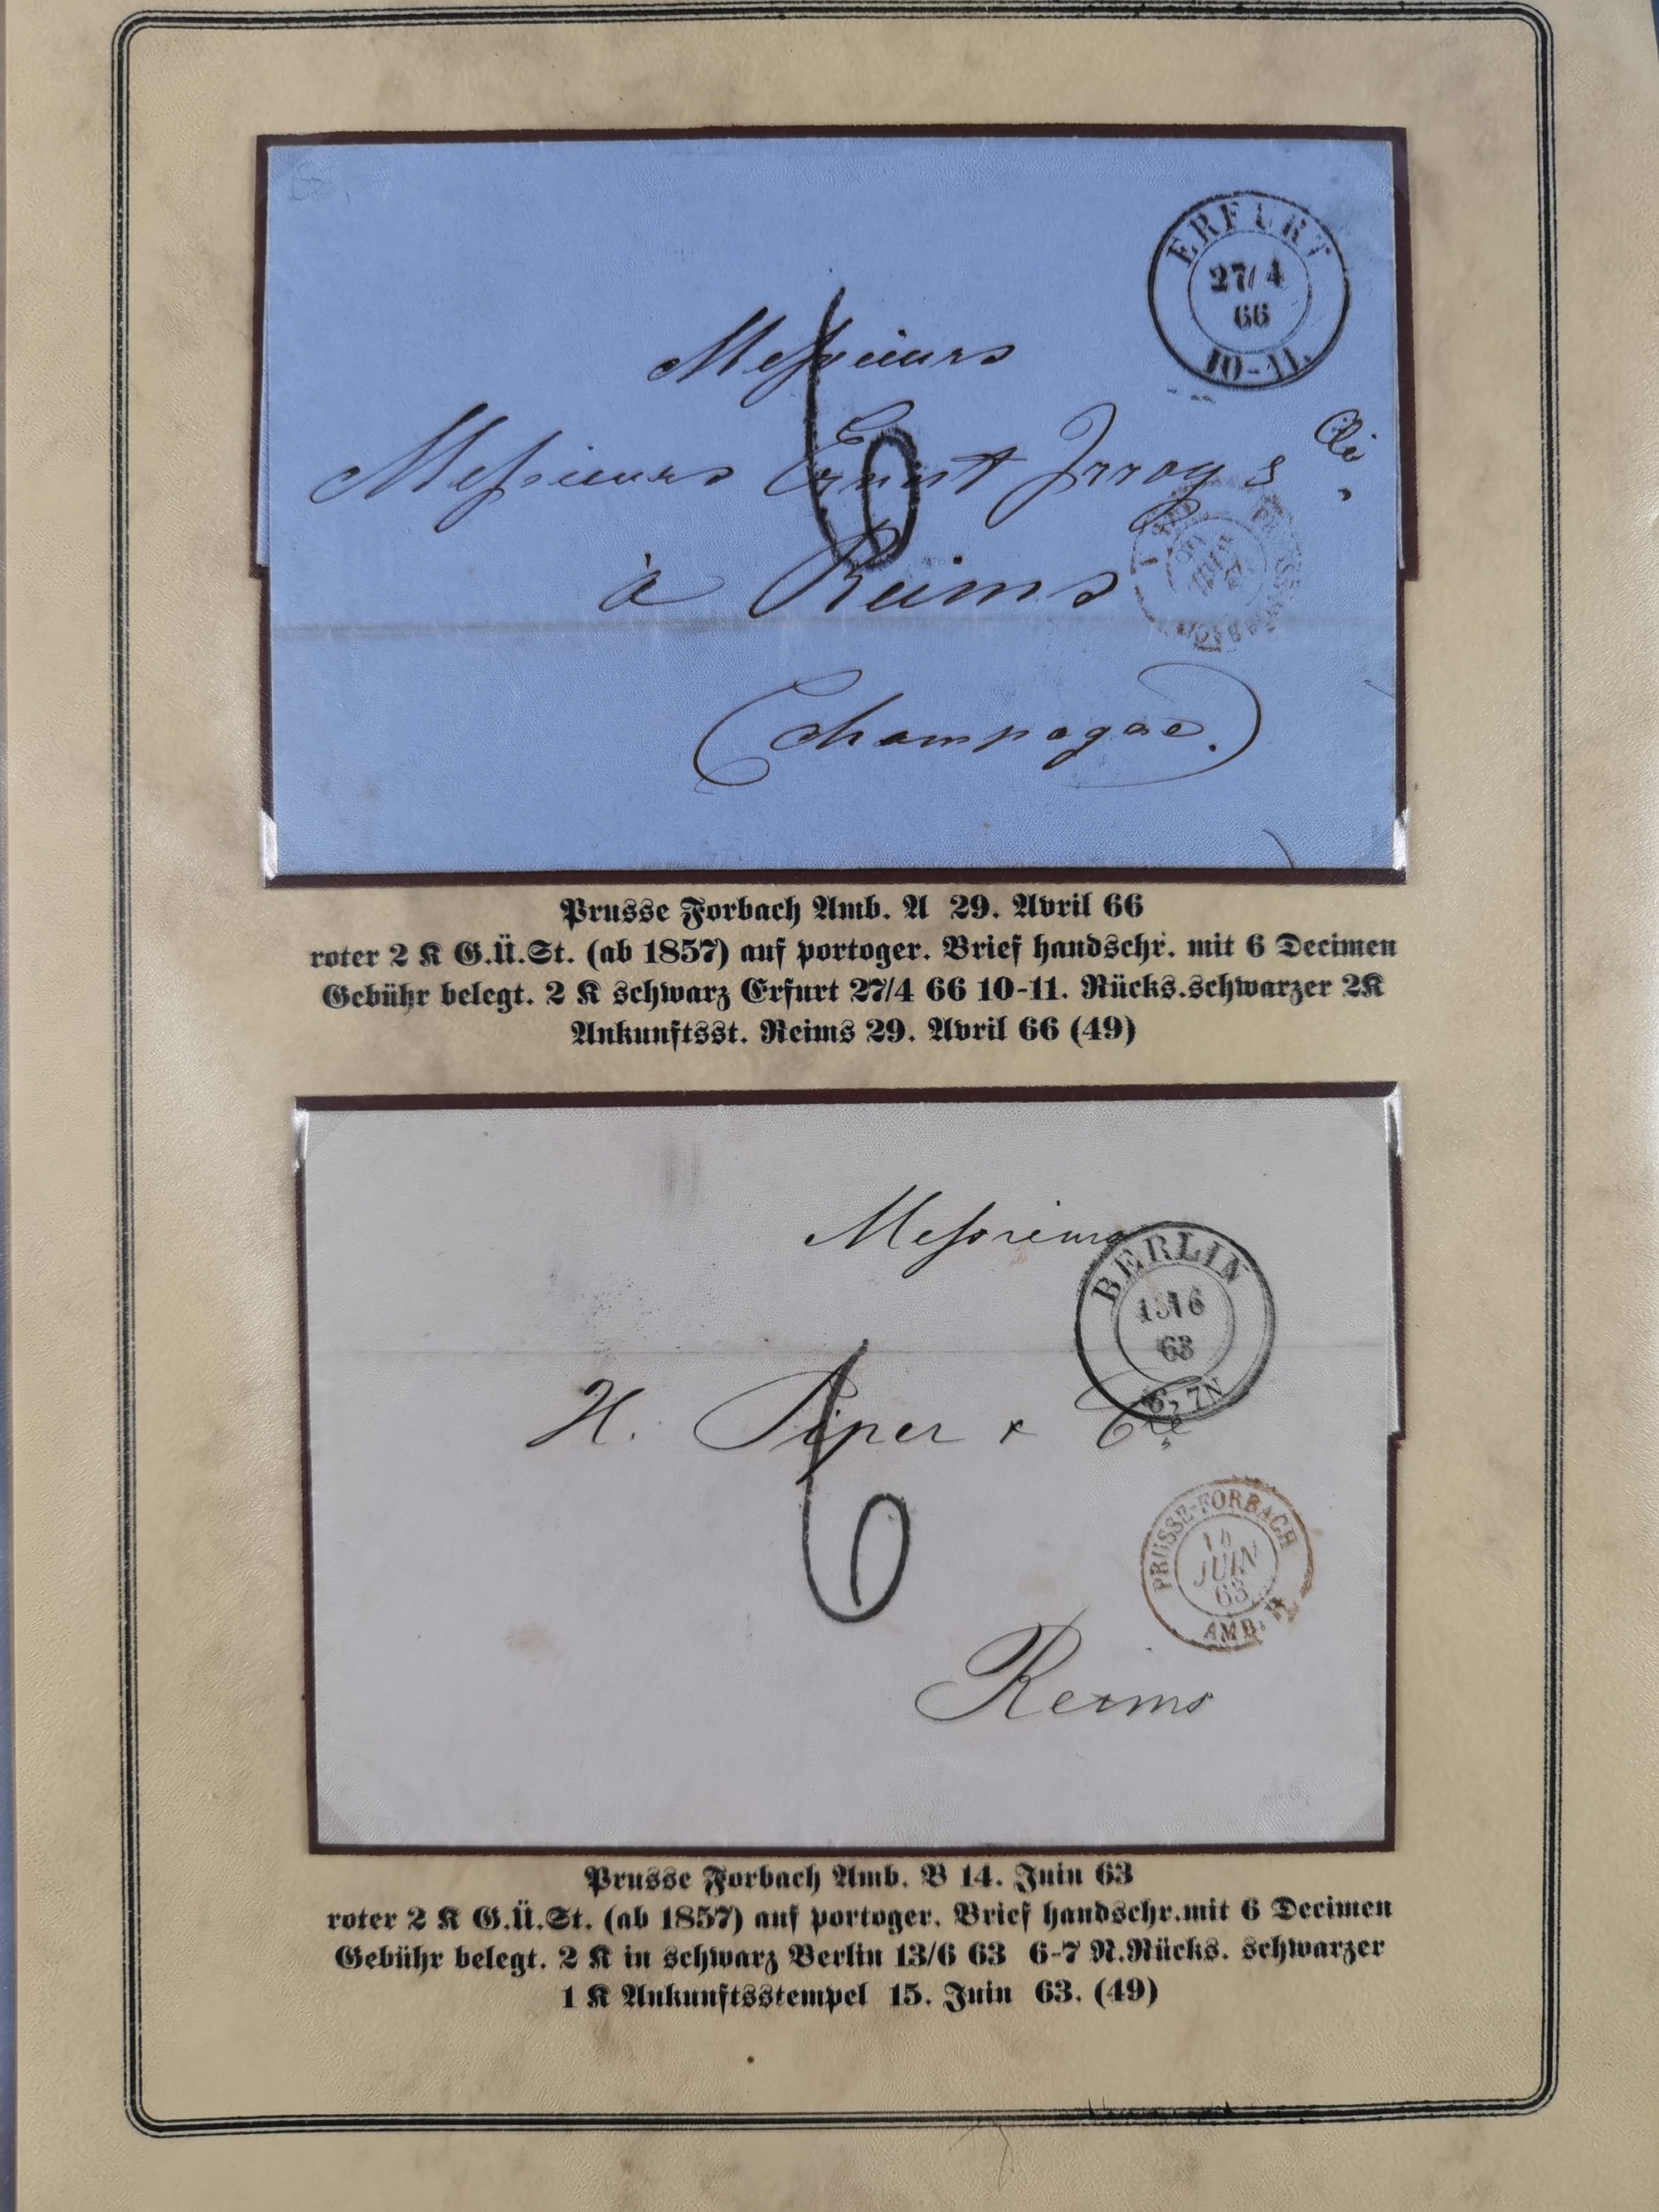 ERFURT
27/4
66
10-11.
Messieurs
Messieurs Ernst Irroy & Cie
à Reims
Champagne.
6
Prusse Forbach Amb. A 29. Avril 66
roter 2 K G.Ü.St. (ab 1857) auf portoger. Brief handschr. mit 6 Decimen
Gebühr belegt. 2 K schwarz Erfurt 27/4 66 10-11. Rücks.schwarzer 2K
Ankunftsst. Reims 29. Avril 66 (49)
Messieurs
BERLIN
13/6
63
6-7N
H. Piper & Cie
6
PRUSSE-FORBACH
14
JUIN
63
AMB. B
Reims
Prusse Forbach Amb. B 14. Juin 63
roter 2 K G.Ü.St. (ab 1857) auf portoger. Brief handschr.mit 6 Decimen
Gebühr belegt. 2 K in schwarz Berlin 13/6 63 6-7 N.Rücks. schwarzer
1 K Ankunftsstempel 15. Juin 63. (49)